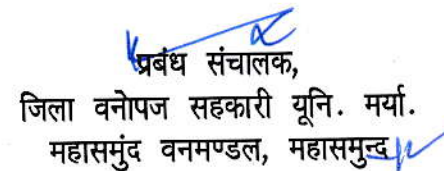 प्रबंध संचालक,
जिला वनोपज सहकारी यूनि. मर्या.
महासमुंद वनमण्डल, महासमुन्द